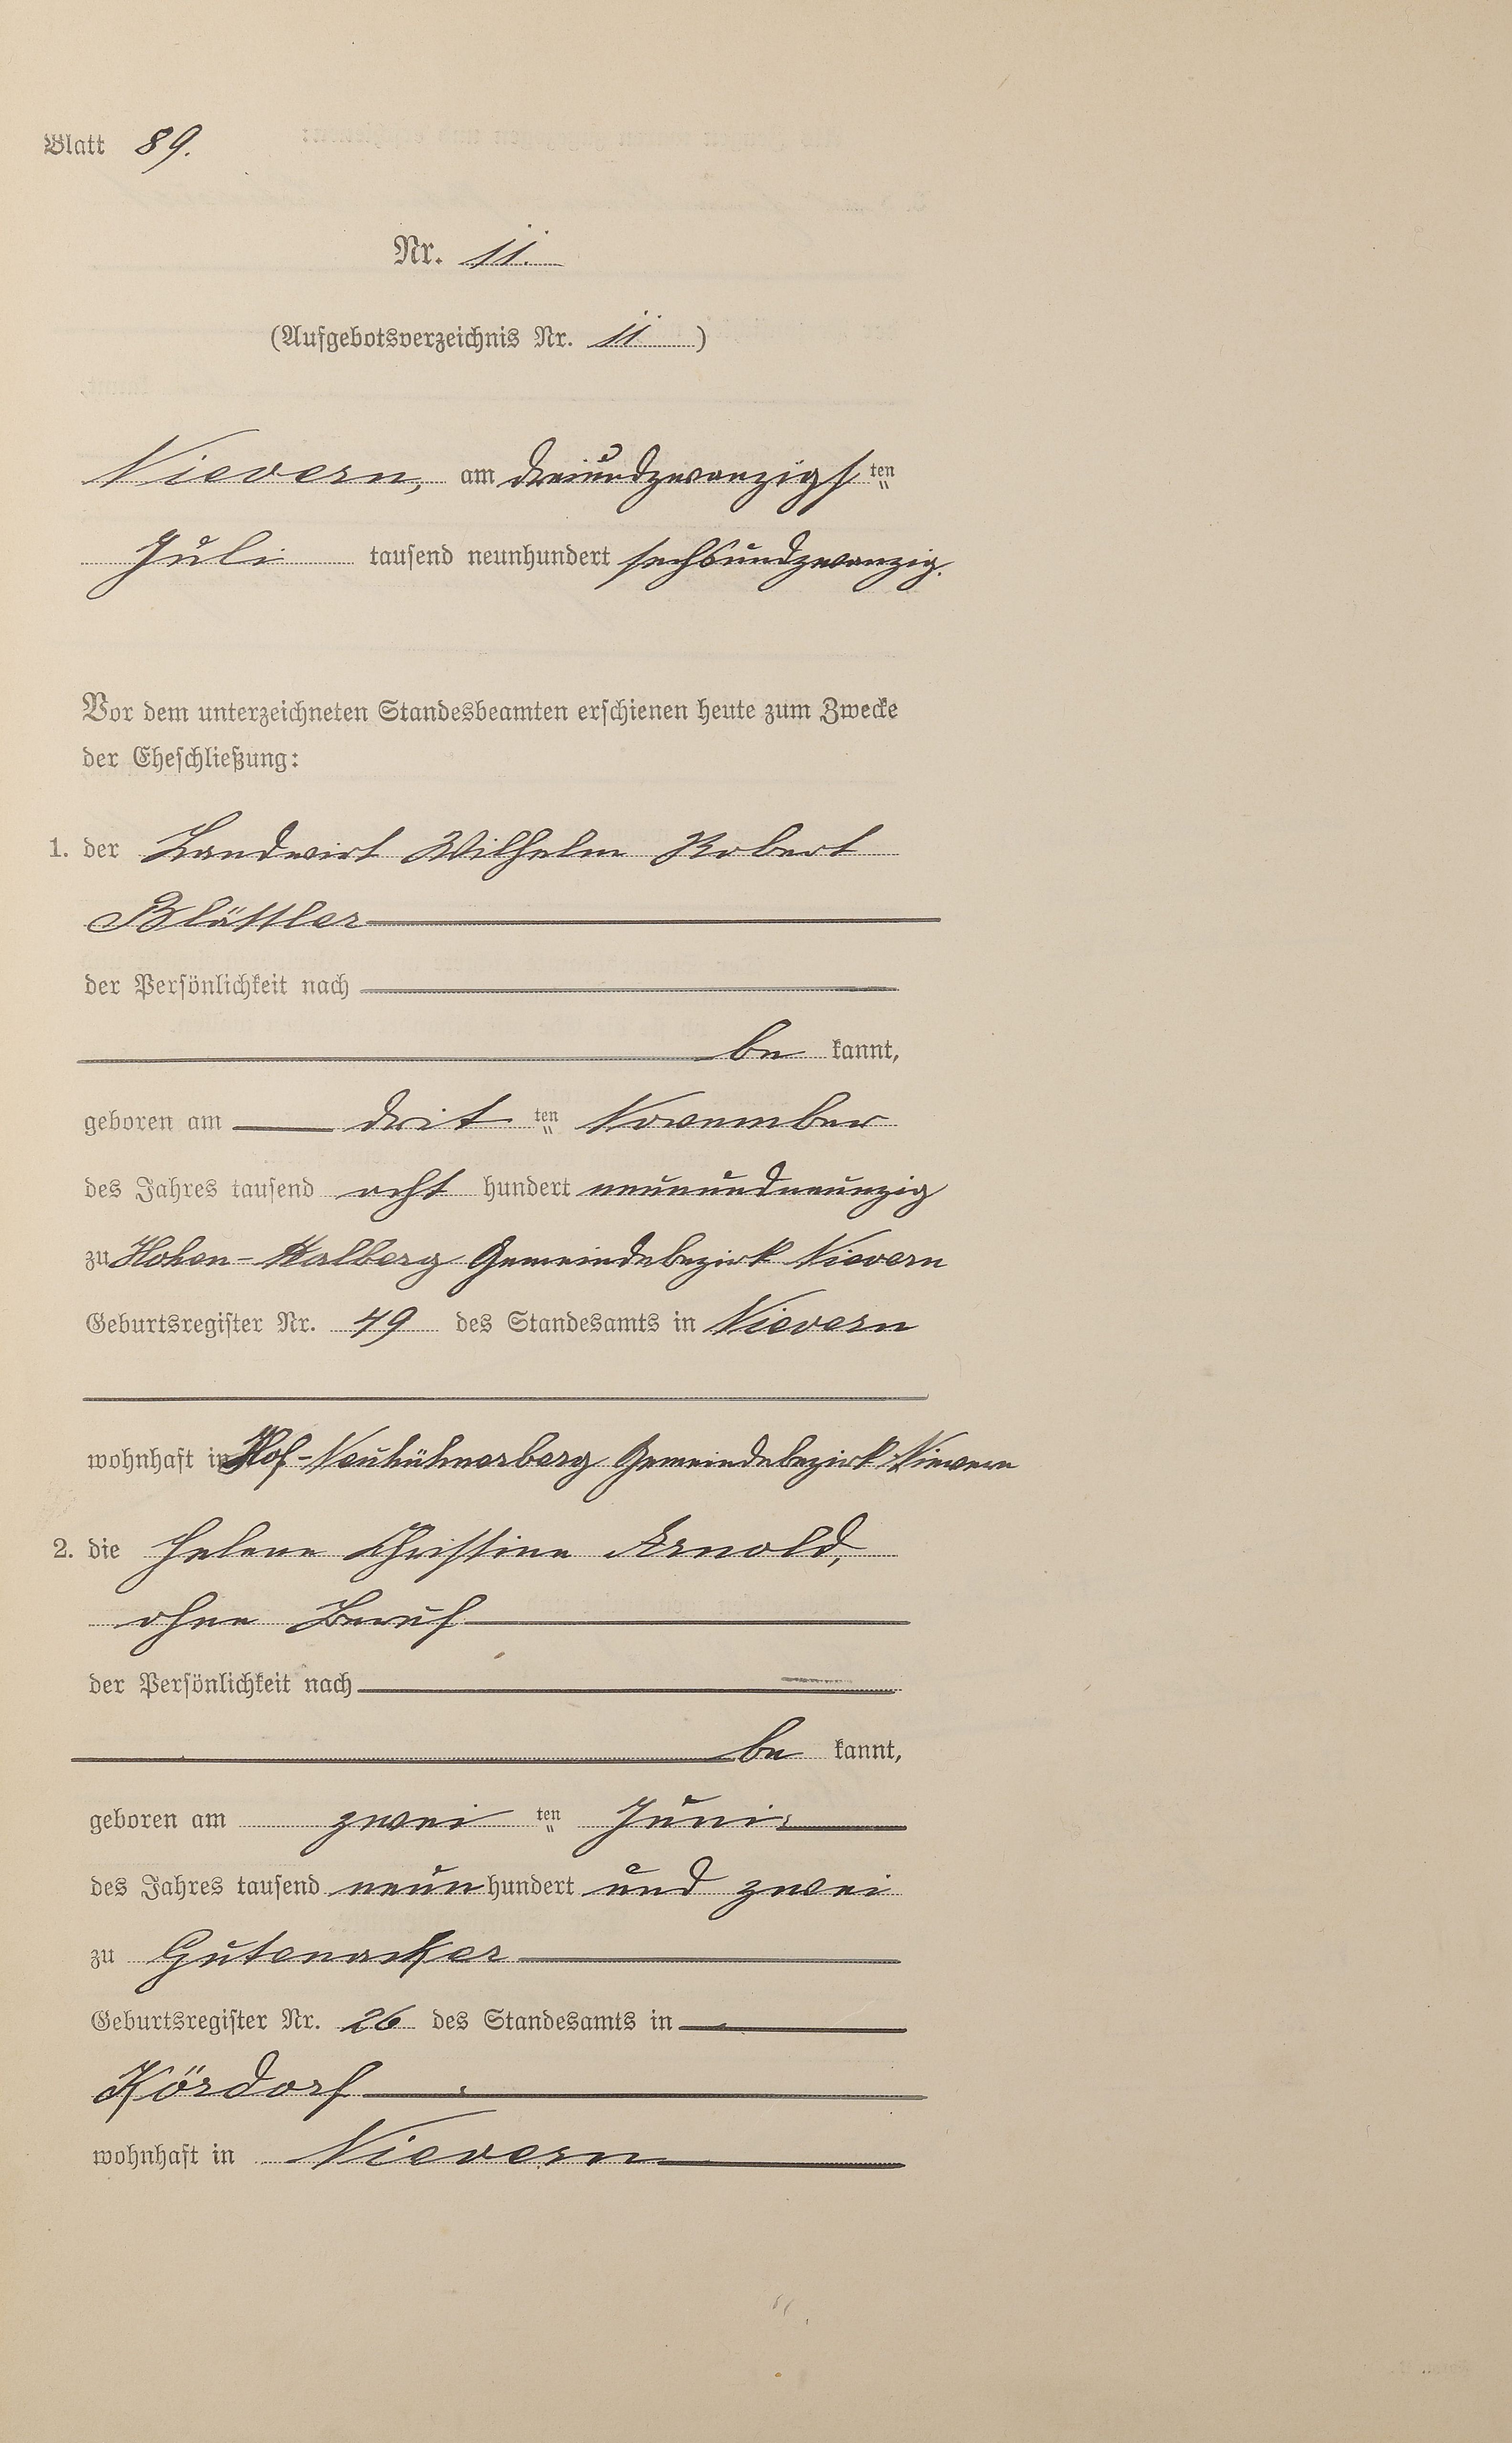 Blatt 89.
Nr. 11.
(Aufgebotsverzeichnis Nr. 11)
Nievern, am dreiundzwanzigsten
Juli tausend neunhundert sechsundzwanzig.
Vor dem unterzeichneten Standesbeamten erschienen heute zum Zwecke
der Eheschließung:
1. der Landwirt Wilhelm Robert
Blättler
der Persönlichkeit nach
be kannt,
geboren am dritten November
des Jahres tausend acht hundert neunundneunzig
zu Hohen-Malberg Gemeindebezirk Nievern
Geburtsregister Nr. 49 des Standesamts in Nievern
wohnhaft in Hof-Neuhühnerberg Gemeindebezirk Nievern
2. die Helene Christine Arnold,
ohne Beruf
der Persönlichkeit nach
be kannt,
geboren am zwei ten Juni
des Jahres tausend neun hundert und zwei
zu Gutenacker
Geburtsregister Nr. 26 des Standesamts in
Kördorf
wohnhaft in Nievern